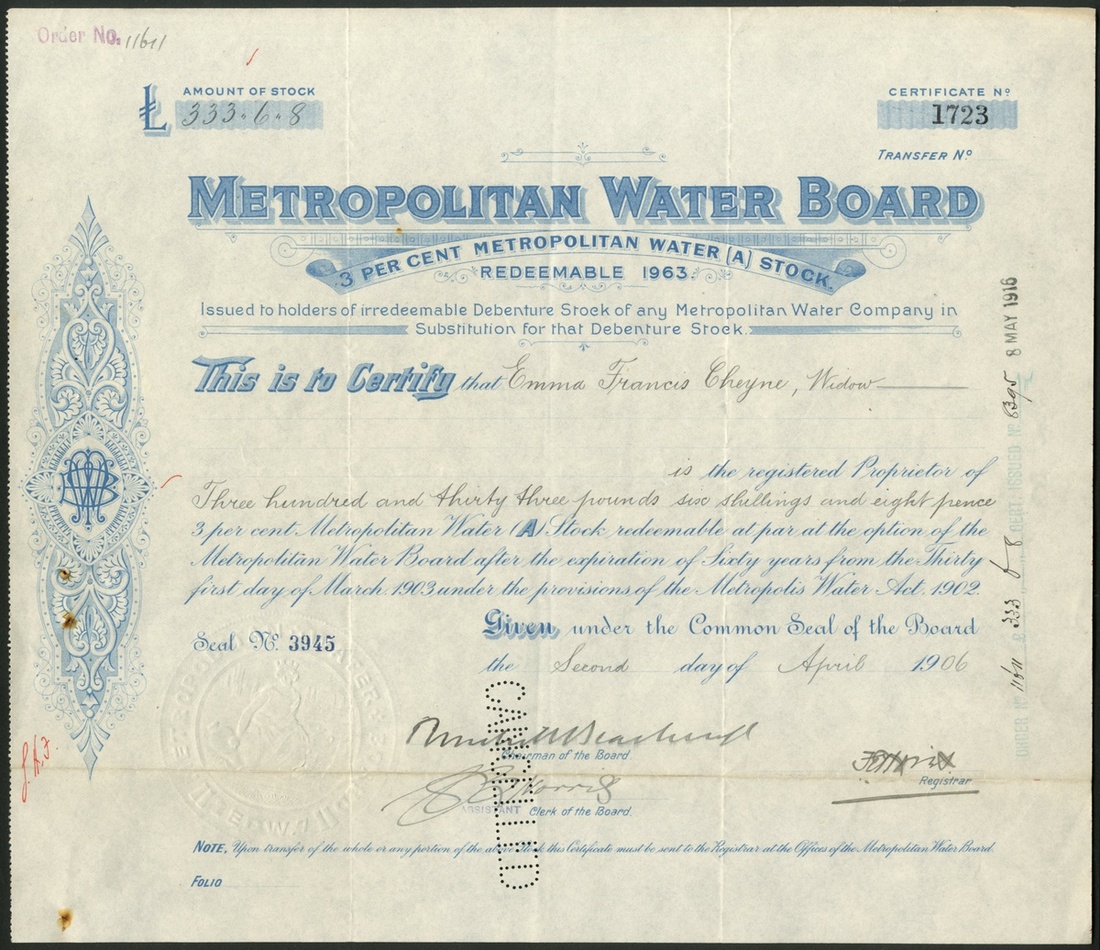 Order No. 11611
£ AMOUNT OF STOCK
333.. 6.. 8
CERTIFICATE No
1723
TRANSFER No
METROPOLITAN WATER BOARD
3 PER CENT METROPOLITAN WATER (A) STOCK.
REDEEMABLE 1963.
Issued to holders of irredeemable Debenture Stock of any Metropolitan Water Company in
Substitution for that Debenture Stock.
This is to Certify that Emma Francis Cheyne, Widow
is the registered Proprietor of
Three hundred and thirty three pounds six shillings and eight pence
3 per cent. Metropolitan Water (A) Stock redeemable at par at the option of the
Metropolitan Water Board after the expiration of Sixty years from the Thirty
first day of March 1903 under the provisions of the Metropolis Water Act. 1902.
Seal No. 3945
Given under the Common Seal of the Board
the Second day of April 1906
Chairman of the Board.
Registrar
Norris
ASSISTANT Clerk of the Board.
CANCELLED
NOTE. Upon transfer of the whole or any portion of the above Stock this Certificate must be sent to the Registrar at the Offices of the Metropolitan Water Board.
FOLIO
UNDER No 11611 £ 333 6 8 ISSUED No 6395 8 MAY 1916
MWB